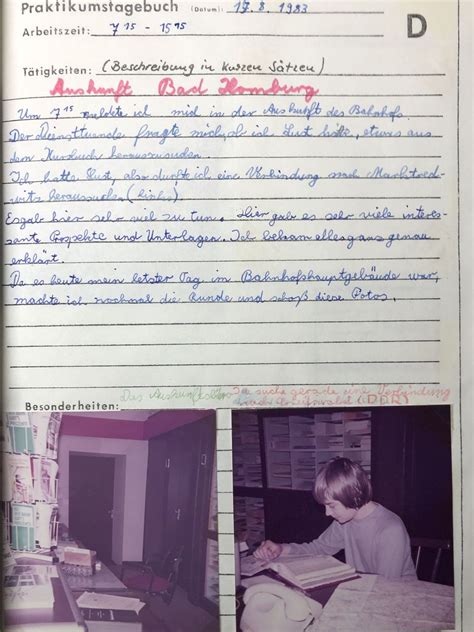 Praktikumstagebuch (Datum): 17.8.1983
Arbeitszeit: 7 15 - 15 45
D
Tätigkeiten: (Beschreibung in kurzen Sätzen)
Auskunft Bad Homburg
Um 7 15 meldete ich mich in der Auskunft des Bahnhofs.
Der fragte mich, ob ich Lust hätte, etwas aus
dem Kursbuch herauszusuchen.
Ich hatte Lust, also durfte ich eine Verbindung nach Marktred-
witz heraussuchen (links).
Es gab hier sehr viel zu tun. Hier gab es sehr viele interes-
sante Prospekte und Unterlagen. Ich bekam alles ganz genau
erklärt.
Da es heute mein letzter Tag im Bahnhofshauptgebäude war,
machte ich nochmal die Runde und schoß diese Fotos.
Das Ich suche gerade eine Verbindung
nach (DDR)
Besonderheiten: